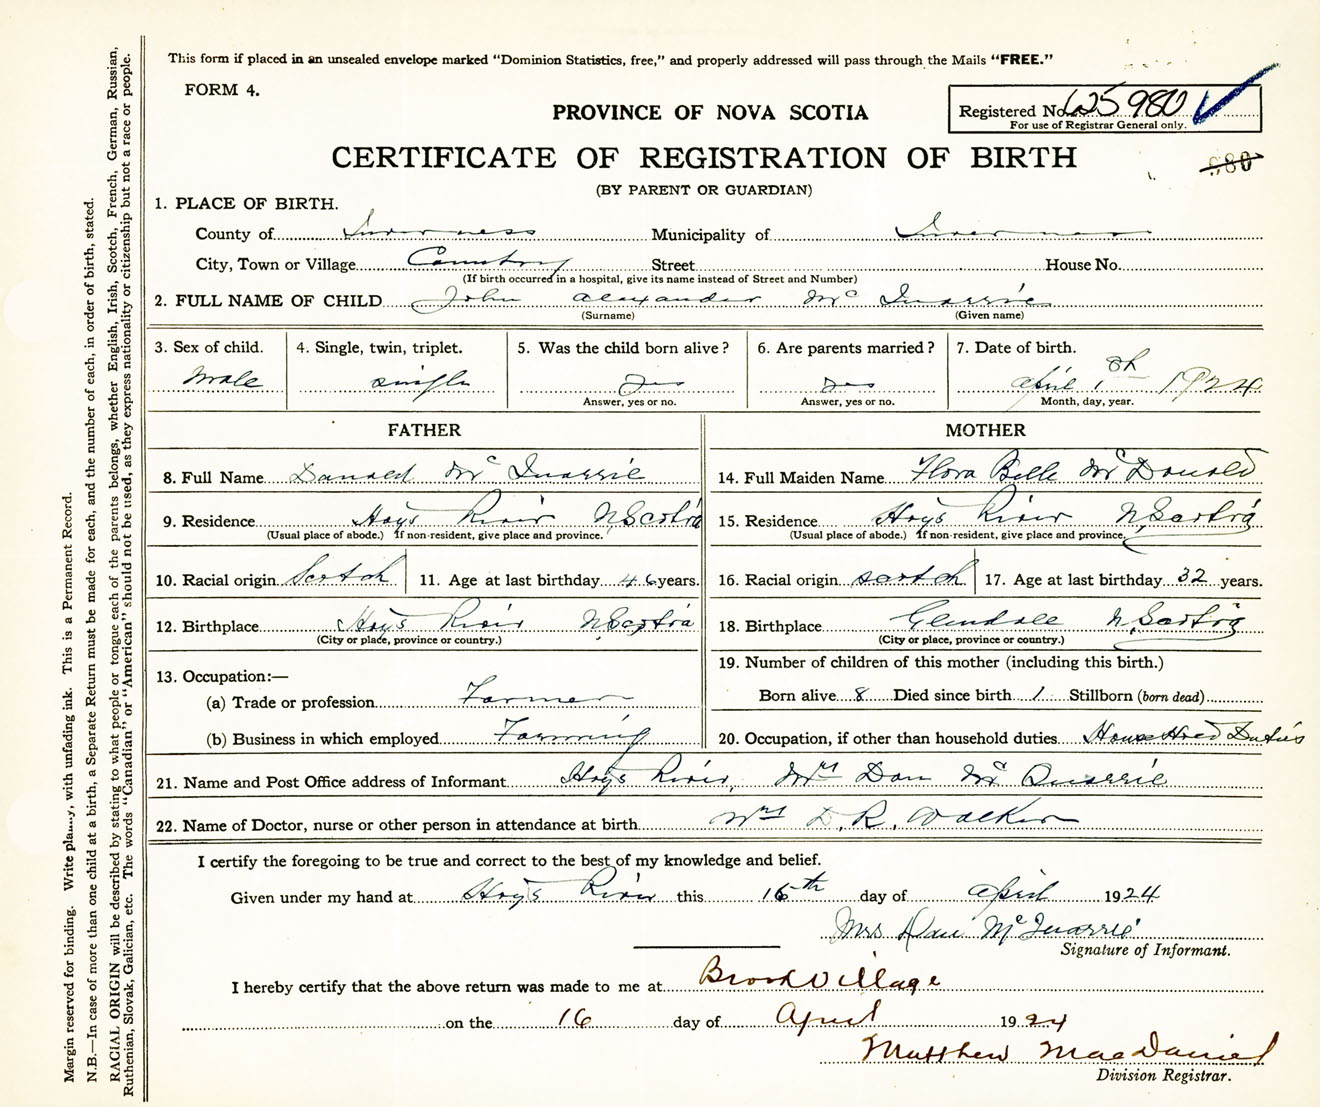 This form if placed in an unsealed envelope marked "Dominion Statistics, free," and properly addressed will pass through the Mails "FREE."
FORM 4.
PROVINCE OF NOVA SCOTIA
Registered No. 625980
For use of Registrar General only.
CERTIFICATE OF REGISTRATION OF BIRTH
980
(BY PARENT OR GUARDIAN)
1. PLACE OF BIRTH.
County of Inverness Municipality of Inverness
City, Town or Village Country Street House No.
(If birth occurred in a hospital, give its name instead of Street and Number)
2. FULL NAME OF CHILD John Alexander Mc Quarrie
(Surname) (Given name)
3. Sex of child. 4. Single, twin, triplet. 5. Was the child born alive? 6. Are parents married? 7. Date of birth.
Male single yes yes April 1924
Answer, yes or no. Answer, yes or no. Month, day, year.
FATHER MOTHER
8. Full Name Donald Mc Quarrie 14. Full Maiden Name Flora Belle Mc Donald
9. Residence Hays River N Scotia 15. Residence Hays River N Scotia
(Usual place of abode.) If non-resident, give place and province. (Usual place of abode.) If non-resident, give place and province.
10. Racial origin Scotch 11. Age at last birthday 46 years. 16. Racial origin scotch 17. Age at last birthday 32 years.
12. Birthplace Hays River N Scotia 18. Birthplace Glendale N. Scotia
(City or place, province or country.) (City or place, province or country.)
13. Occupation:— 19. Number of children of this mother (including this birth.)
(a) Trade or profession Farmer Born alive 8 Died since birth 1 Stillborn (born dead)
(b) Business in which employed Farming 20. Occupation, if other than household duties HouseHoed Duties
21. Name and Post Office address of Informant Hays River, Mrs Dan Mc Quarrie
22. Name of Doctor, nurse or other person in attendance at birth Mrs D. R. Walker
I certify the foregoing to be true and correct to the best of my knowledge and belief.
Given under my hand at Hays River this 16th day of April 1924
Mrs Dan McQuarrie
Signature of Informant.
I hereby certify that the above return was made to me at Brook Village
on the 16 day of April 1924
Matthew MacDaniel
Division Registrar.
Margin reserved for binding. Write plainly, with unfading ink. This is a Permanent Record.
N.B.—In case of more than one child at a birth, a Separate Return must be made for each, and the number of each, in order of birth, stated.
RACIAL ORIGIN will be described by stating to what people or tongue each of the parents belongs, whether English, Irish, Scotch, French, German, Russian,
Ruthenian, Slovak, Galician, etc. The words "Canadian" or "American" should not be used, as they express nationality or citizenship but not a race or people.